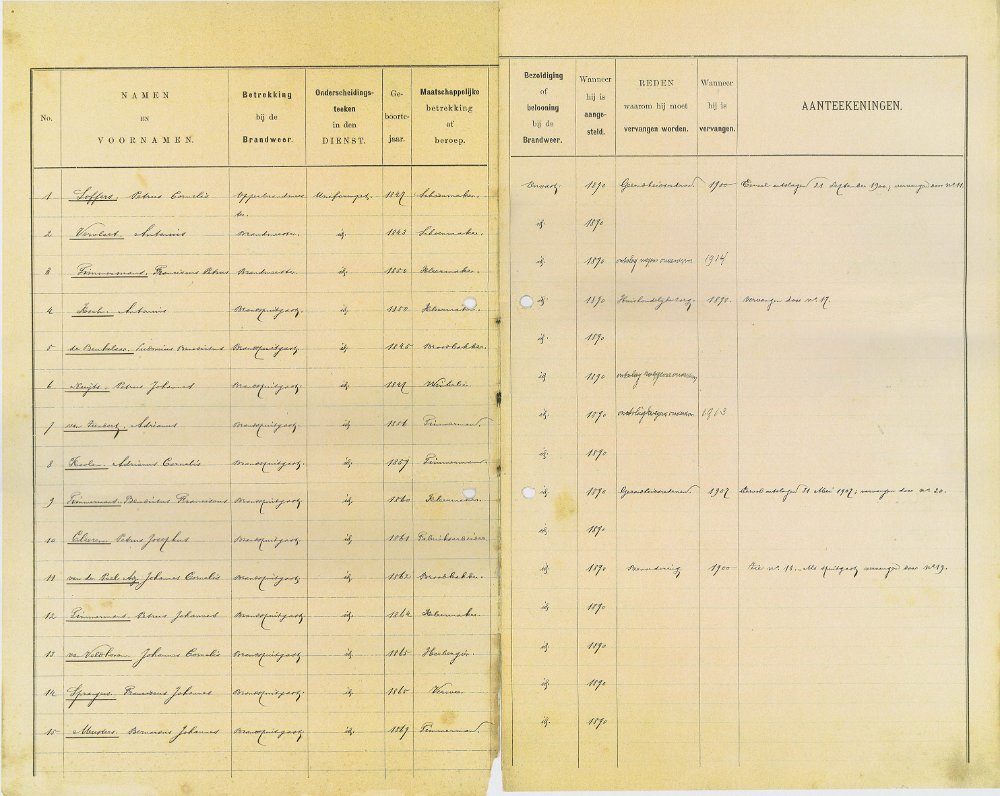 No. NAMEN EN VOORNAMEN. Betrekking bij de Brandweer. Onderscheidings-teeken in den DIENST. Ge-boorte-jaar. Maatschappelijke betrekking of beroep. Bezoldiging of belooning bij de Brandweer. Wanneer hij is aange-steld. REDEN waarom hij moet vervangen worden. Wanneer hij is vervangen. AANTEEKENINGEN.
1 Soffers, Petrus Cornelis 1847 Schoenmaker. Onbez. 1890 1900 Eervol ontslagen 21 September 1900; vervangen door no 11.
2 Antonius Brandmeester id. 1843 Schoenmaker. id. 1890
3 Timmermans, Franciscus Petrus Brandmeester id. 1850 Kleermaker. id. 1890 ontslag wegens 1914
4 Antonius Brandspuitgast id. 1850 Kleermaker. id. 1890 1890. Vervangen door no 17.
5 Brandspuitgast id. 1845 Broodbakker. id. 1890
6 Petrus Johannes Brandspuitgast id. 1847 Winkelier id. 1890 ontslag wegens
7 Adrianus Brandspuitgast id. 1856 Timmerman id. 1890 ontslag wegens 1913
8 Adrianus Cornelis Brandspuitgast id. 1857 Timmerman id. 1890
9 Timmermans Franciscus Brandspuitgast id. 1860 Kleermaker. id. 1890 1907 Eervol ontslagen 31 Mei 1907; vervangen door no 20.
10 Petrus Josephus Brandspuitgast id. 1861 Fabrieksarbeider id. 1890
11 van der Johannes Cornelis Brandspuitgast id. 1862 Broodbakker. id. 1890 Bevordering 1900 Zie no 1. Als spuitgast vervangen door no 19.
12 Timmermans Petrus Johannes Brandspuitgast id. 1864 Kleermaker id. 1890
13 van Veldhoven Johannes Cornelis Brandspuitgast id. 1865 id. 1890
14 Franciscus Johannes Brandspuitgast id. 1865 Verver id. 1890
15 Meusters Bernardus Johannes Brandspuitgast id. 1869 Timmerman id. 1890